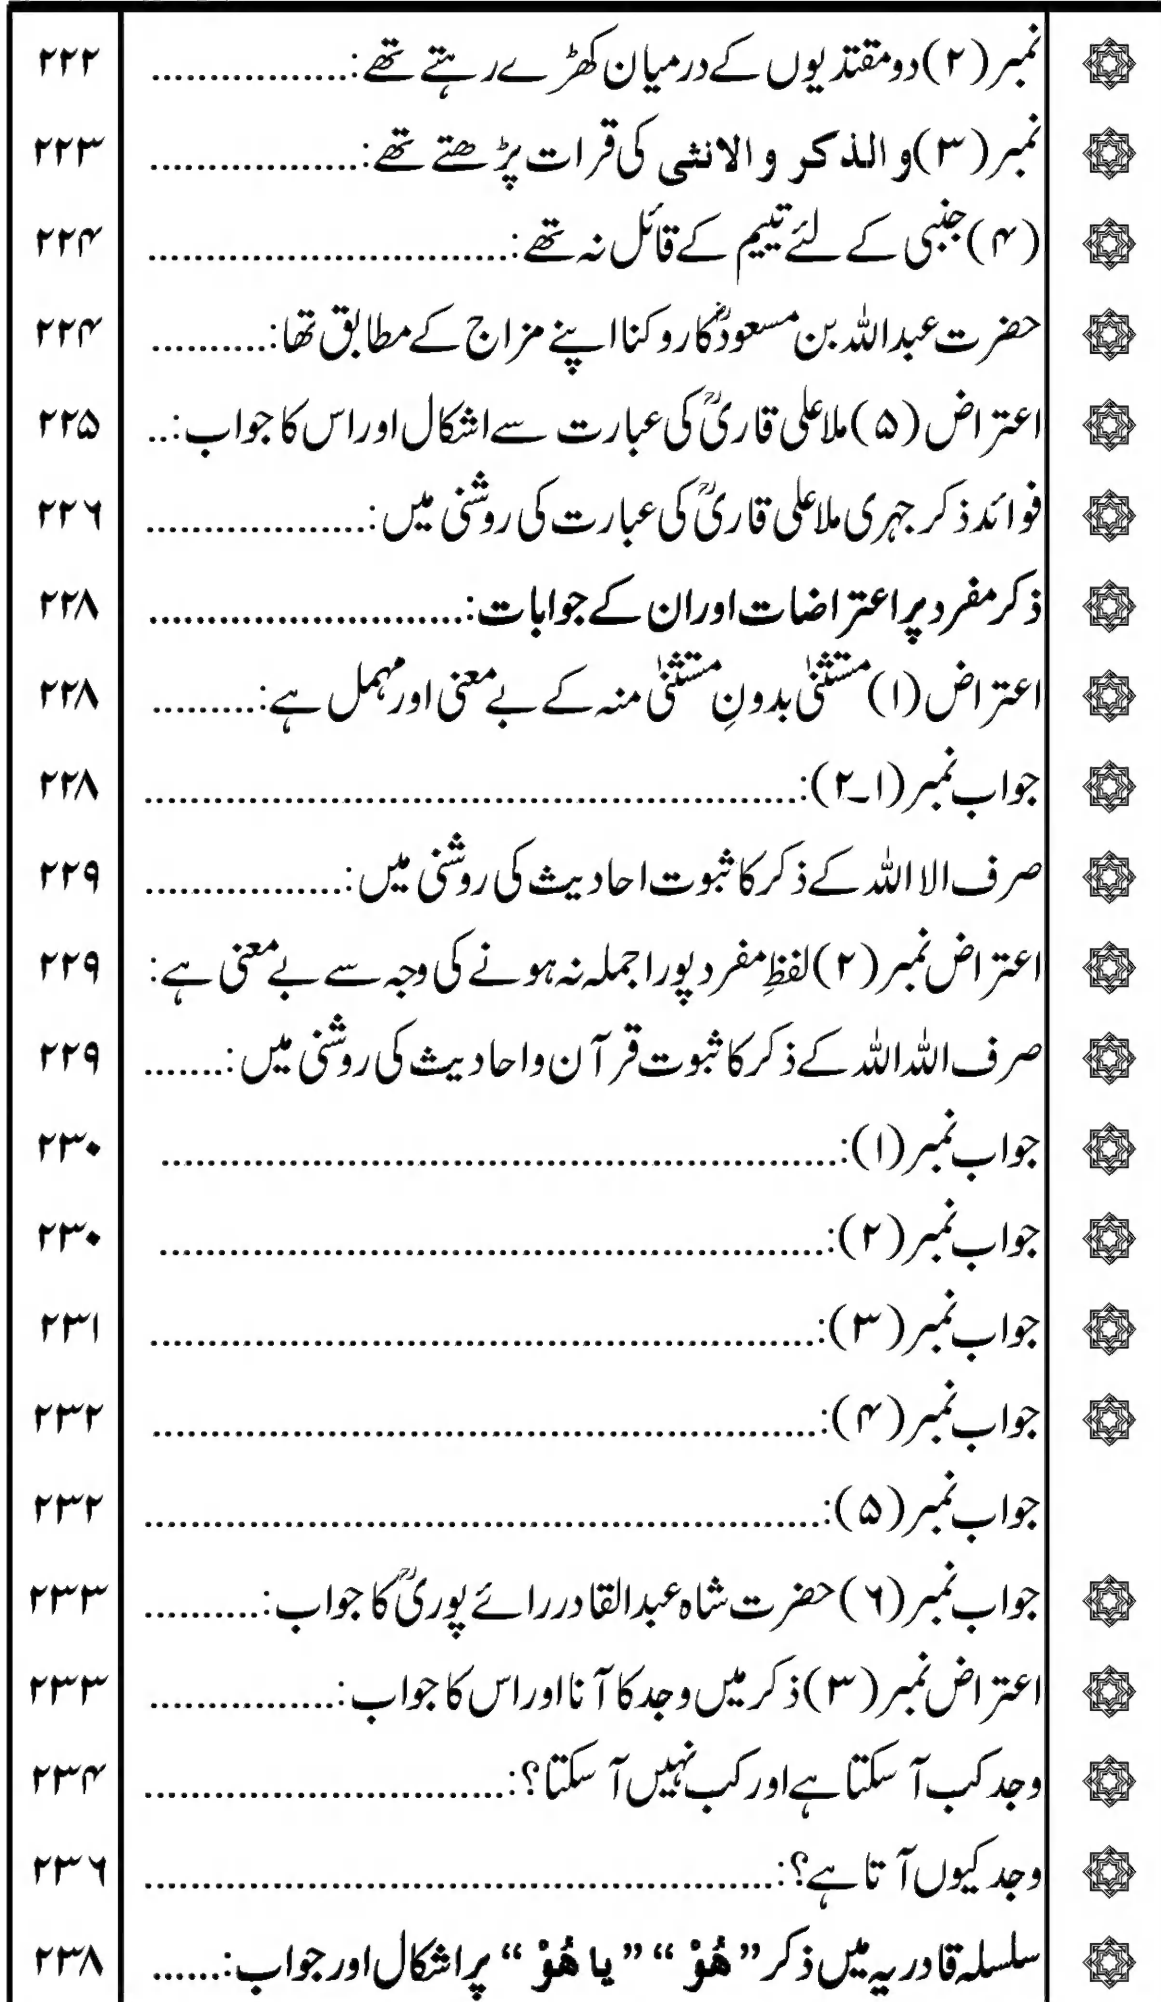 نمبر (۲) دو مقتدیوں کے درمیان کھڑے رہتے تھے:................. ۲۲۲
نمبر (۳) والذکر والانثی کی قرات پڑھتے تھے:.................. ۲۲۳
(۴) جنبی کے لئے تیمم کے قائل نہ تھے:................................ ۲۲۴
حضرت عبداللہ بن مسعودؓ کا روکنا اپنے مزاج کے مطابق تھا:.......... ۲۲۴
اعتراض (۵) ملا علی قاریؒ کی عبارت سے اشکال اور اس کا جواب:.. ۲۲۵
فوائد ذکر جہری ملا علی قاریؒ کی عبارت کی روشنی میں:................... ۲۲۶
ذکر مفرد پر اعتراضات اور ان کے جوابات:............................ ۲۲۸
اعتراض (۱) مستثنیٰ بدونِ مستثنیٰ منہ کے بے معنی اور مہمل ہے:......... ۲۲۸
جواب نمبر (۱۔۲):.......................................................... ۲۲۸
صرف الا اللہ کے ذکر کا ثبوت احادیث کی روشنی میں:.................. ۲۲۹
اعتراض نمبر (۲) لفظِ مفرد پورا جملہ نہ ہونے کی وجہ سے بے معنی ہے: ۲۲۹
صرف اللہ اللہ کے ذکر کا ثبوت قرآن واحادیث کی روشنی میں:....... ۲۲۹
جواب نمبر (۱):............................................................ ۲۳۰
جواب نمبر (۲):........................................................... ۲۳۰
جواب نمبر (۳):........................................................... ۲۳۱
جواب نمبر (۴):........................................................... ۲۳۲
جواب نمبر (۵):............................................................ ۲۳۲
جواب نمبر (۶) حضرت شاہ عبدالقادر رائے پوریؒ کا جواب:.......... ۲۳۳
اعتراض نمبر (۳) ذکر میں وجد کا آنا اور اس کا جواب:................. ۲۳۳
وجد کب آ سکتا ہے اور کب نہیں آ سکتا؟:................................ ۲۳۴
وجد کیوں آتا ہے؟:........................................................ ۲۳۶
سلسلہ قادریہ میں ذکر ”ھُوْ“ ”یا ھُوْ“ پر اشکال اور جواب:...... ۲۳۸